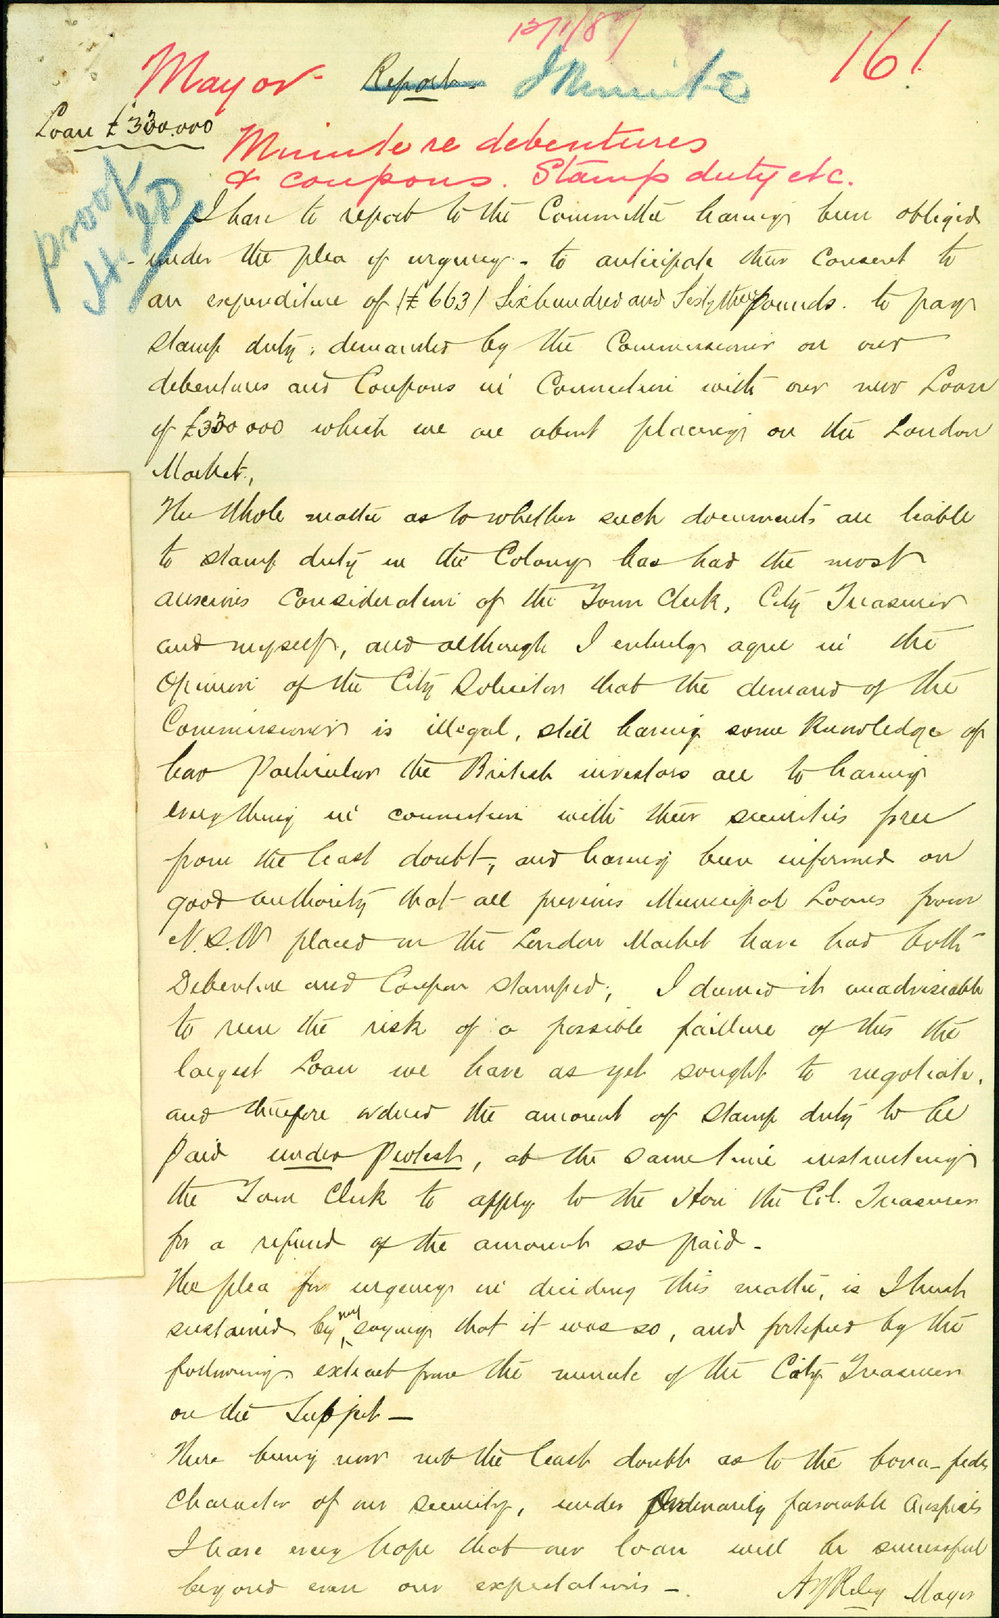 12/1/87
161
Mayor Report Minute
Loan £330.000
Minute re debentures
& coupons. Stamp duty etc.
proof
I have to report to the Committee having been obliged
- under the plea of urgency - to anticipate their consent to
an expenditure of (£663) Six hundred and Sixty three pounds. to pay
stamp duty, demanded by the Commissioner on our
debentures and Coupons in Connection with our new Loan
of £330 000 which we are about placing on the London
Market.
The Whole matter as to whether such documents are liable
to stamp duty in the Colony has had the most
anxious Consideration of the Town Clerk, City Treasurer
and myself, and although I entirely agree in the
Opinion of the City Solicitor that the demand of the
Commissioner is illegal, still having some knowledge of
how particular the British investors are to having
everything in connection with their securities free
from the least doubt, and having been informed on
good authority that all previous Municipal Loans from
N.S.W placed on the London Market have had both
Debenture and Coupon stamped; I deemed it unadvisable
to run the risk of a possible failure of this the
largest Loan we have as yet sought to negotiate.
and therefore ordered the amount of Stamp duty to be
Paid under Protest, at the same time instructing
the Town Clerk to apply to the Hon the Col. Treasurer
for a refund of the amount so paid -
The plea for urgency in deciding this matter, is I think
sustained by my saying that it was so, and fortified by the
following extract from the minute of the City Treasurer
on the Subject -
There being now not the least doubt as to the bona-fide
character of our security, under Ordinarily favorable Auspices
I have every hope that our loan will be successful
beyond even our expectations -
A J Riley Mayor